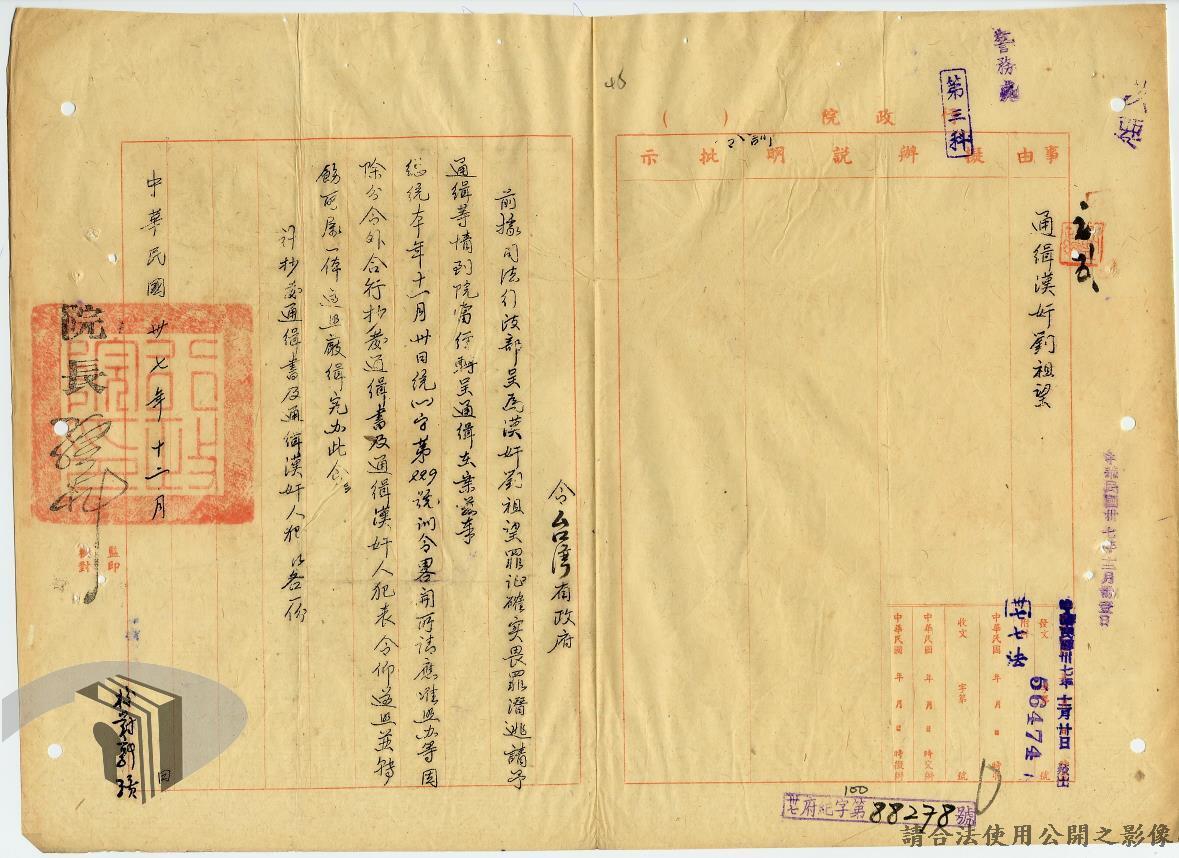 警務處
第三科
行政院（　）
事由
擬辦
說明
批示
訓
46
通緝漢奸劉祖望
中華民國卅七年十二月廿日發出
發文
附
卅七法
56474
中華民國　年　月　日　時
收文　字第　號
中華民國　年　月　日　時交辦
中華民國　年　月　日　時擬辦
卅七府紀字第88278號
100
令台灣省政府
前據司法行政部呈為漢奸劉祖望罪証確實畏罪潛逃請予
通緝等情到院當經轉呈通緝在案茲奉
總統本年十一月卅日統㈠字第229號訓令畧開所請應准照办等因
除分令外合行抄發通緝書及通緝漢奸人犯表令仰遵照並轉
飭所屬一体遵照嚴緝究办此令
計抄發通緝書及通緝漢奸人犯表各一份
中華民國卅七年十二月
院長孫科
監印
校對
請合法使用公開之影像